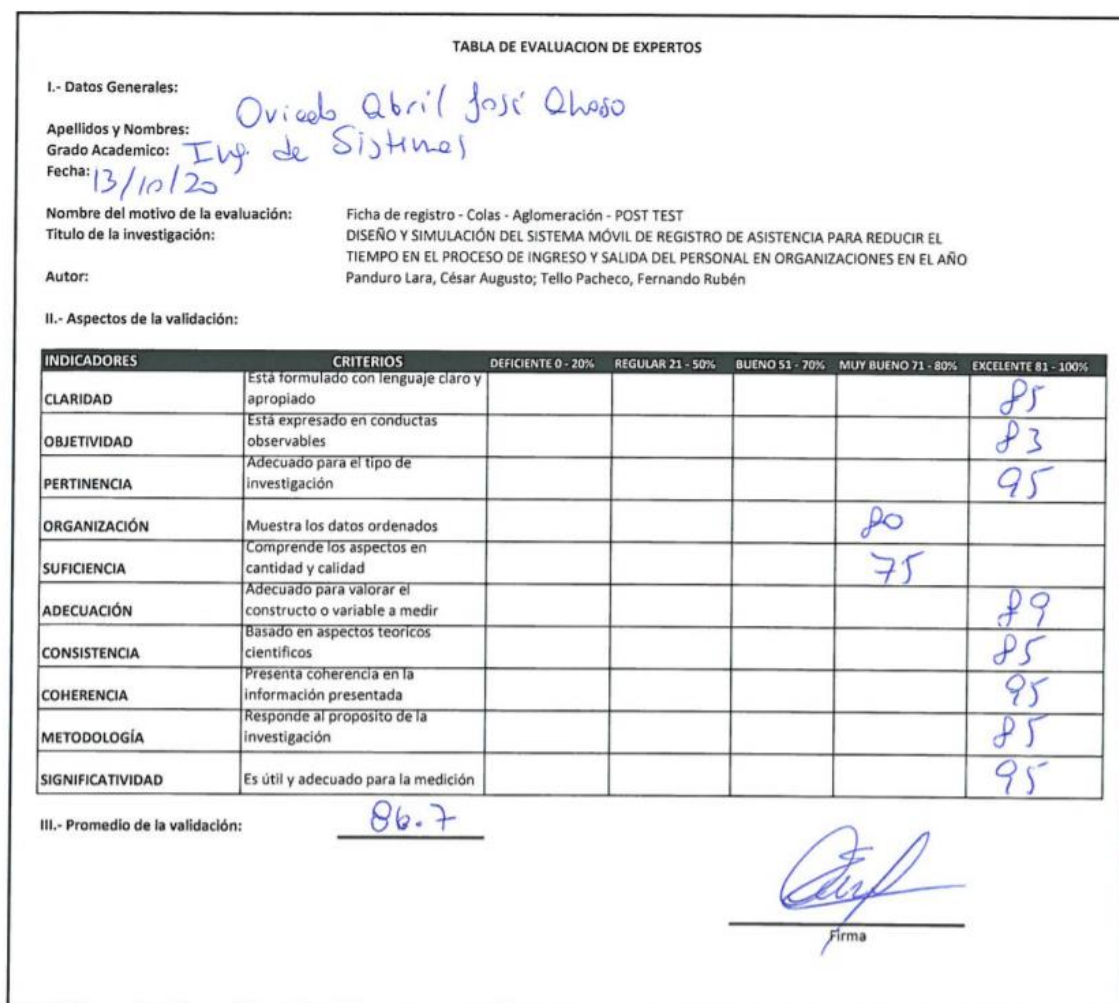 TABLA DE EVALUACION DE EXPERTOS
I.- Datos Generales:
Apellidos y Nombres: Oviedo Abril José
Grado Academico: Ing. de Sistemas
Fecha: 13/10/20
Nombre del motivo de la evaluación: Ficha de registro - Colas - Aglomeración - POST TEST
Titulo de la investigación: DISEÑO Y SIMULACIÓN DEL SISTEMA MÓVIL DE REGISTRO DE ASISTENCIA PARA REDUCIR EL
TIEMPO EN EL PROCESO DE INGRESO Y SALIDA DEL PERSONAL EN ORGANIZACIONES EN EL AÑO
Autor: Panduro Lara, César Augusto; Tello Pacheco, Fernando Rubén
II.- Aspectos de la validación:
INDICADORES CRITERIOS DEFICIENTE 0 - 20% REGULAR 21 - 50% BUENO 51 - 70% MUY BUENO 71 - 80% EXCELENTE 81 - 100%
Está formulado con lenguaje claro y
CLARIDAD apropiado 85
Está expresado en conductas
OBJETIVIDAD observables 83
Adecuado para el tipo de
PERTINENCIA investigación 95
ORGANIZACIÓN Muestra los datos ordenados 80
Comprende los aspectos en
SUFICIENCIA cantidad y calidad 75
Adecuado para valorar el
ADECUACIÓN constructo o variable a medir 89
Basado en aspectos teoricos
CONSISTENCIA cientificos 85
Presenta coherencia en la
COHERENCIA información presentada 95
Responde al proposito de la
METODOLOGÍA investigación 85
SIGNIFICATIVIDAD Es útil y adecuado para la medición 95
III.- Promedio de la validación: 86.7
Firma